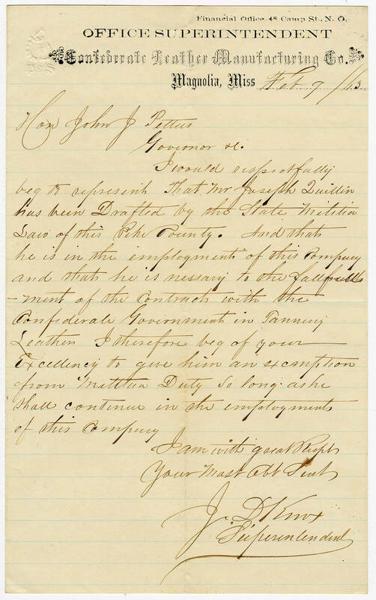 Financial Office, 48 Camp St., N. O.
OFFICE SUPERINTENDENT
Confederate Leather Manufacturing Co.
Magnolia, Miss Feb 7 /63
Hon John J Pettus
Governor &c.
I would respectfully
beg to represent That Mr Joseph Quillin
has been Drafted by the State Militia
Law of this Pike County. And that
he is in the employment of this Company
and that he is nessary to the fullfill
-ment of the Contracts with the
Confederate Government in Tanning
Leather I therefore beg of your
Excellency to give him an exemption
from Militia Duty So long as he
Shall continue in the employment
of this Company
I am with great Respt
Your Most Obt Servt
J. D Knox
Superintendent